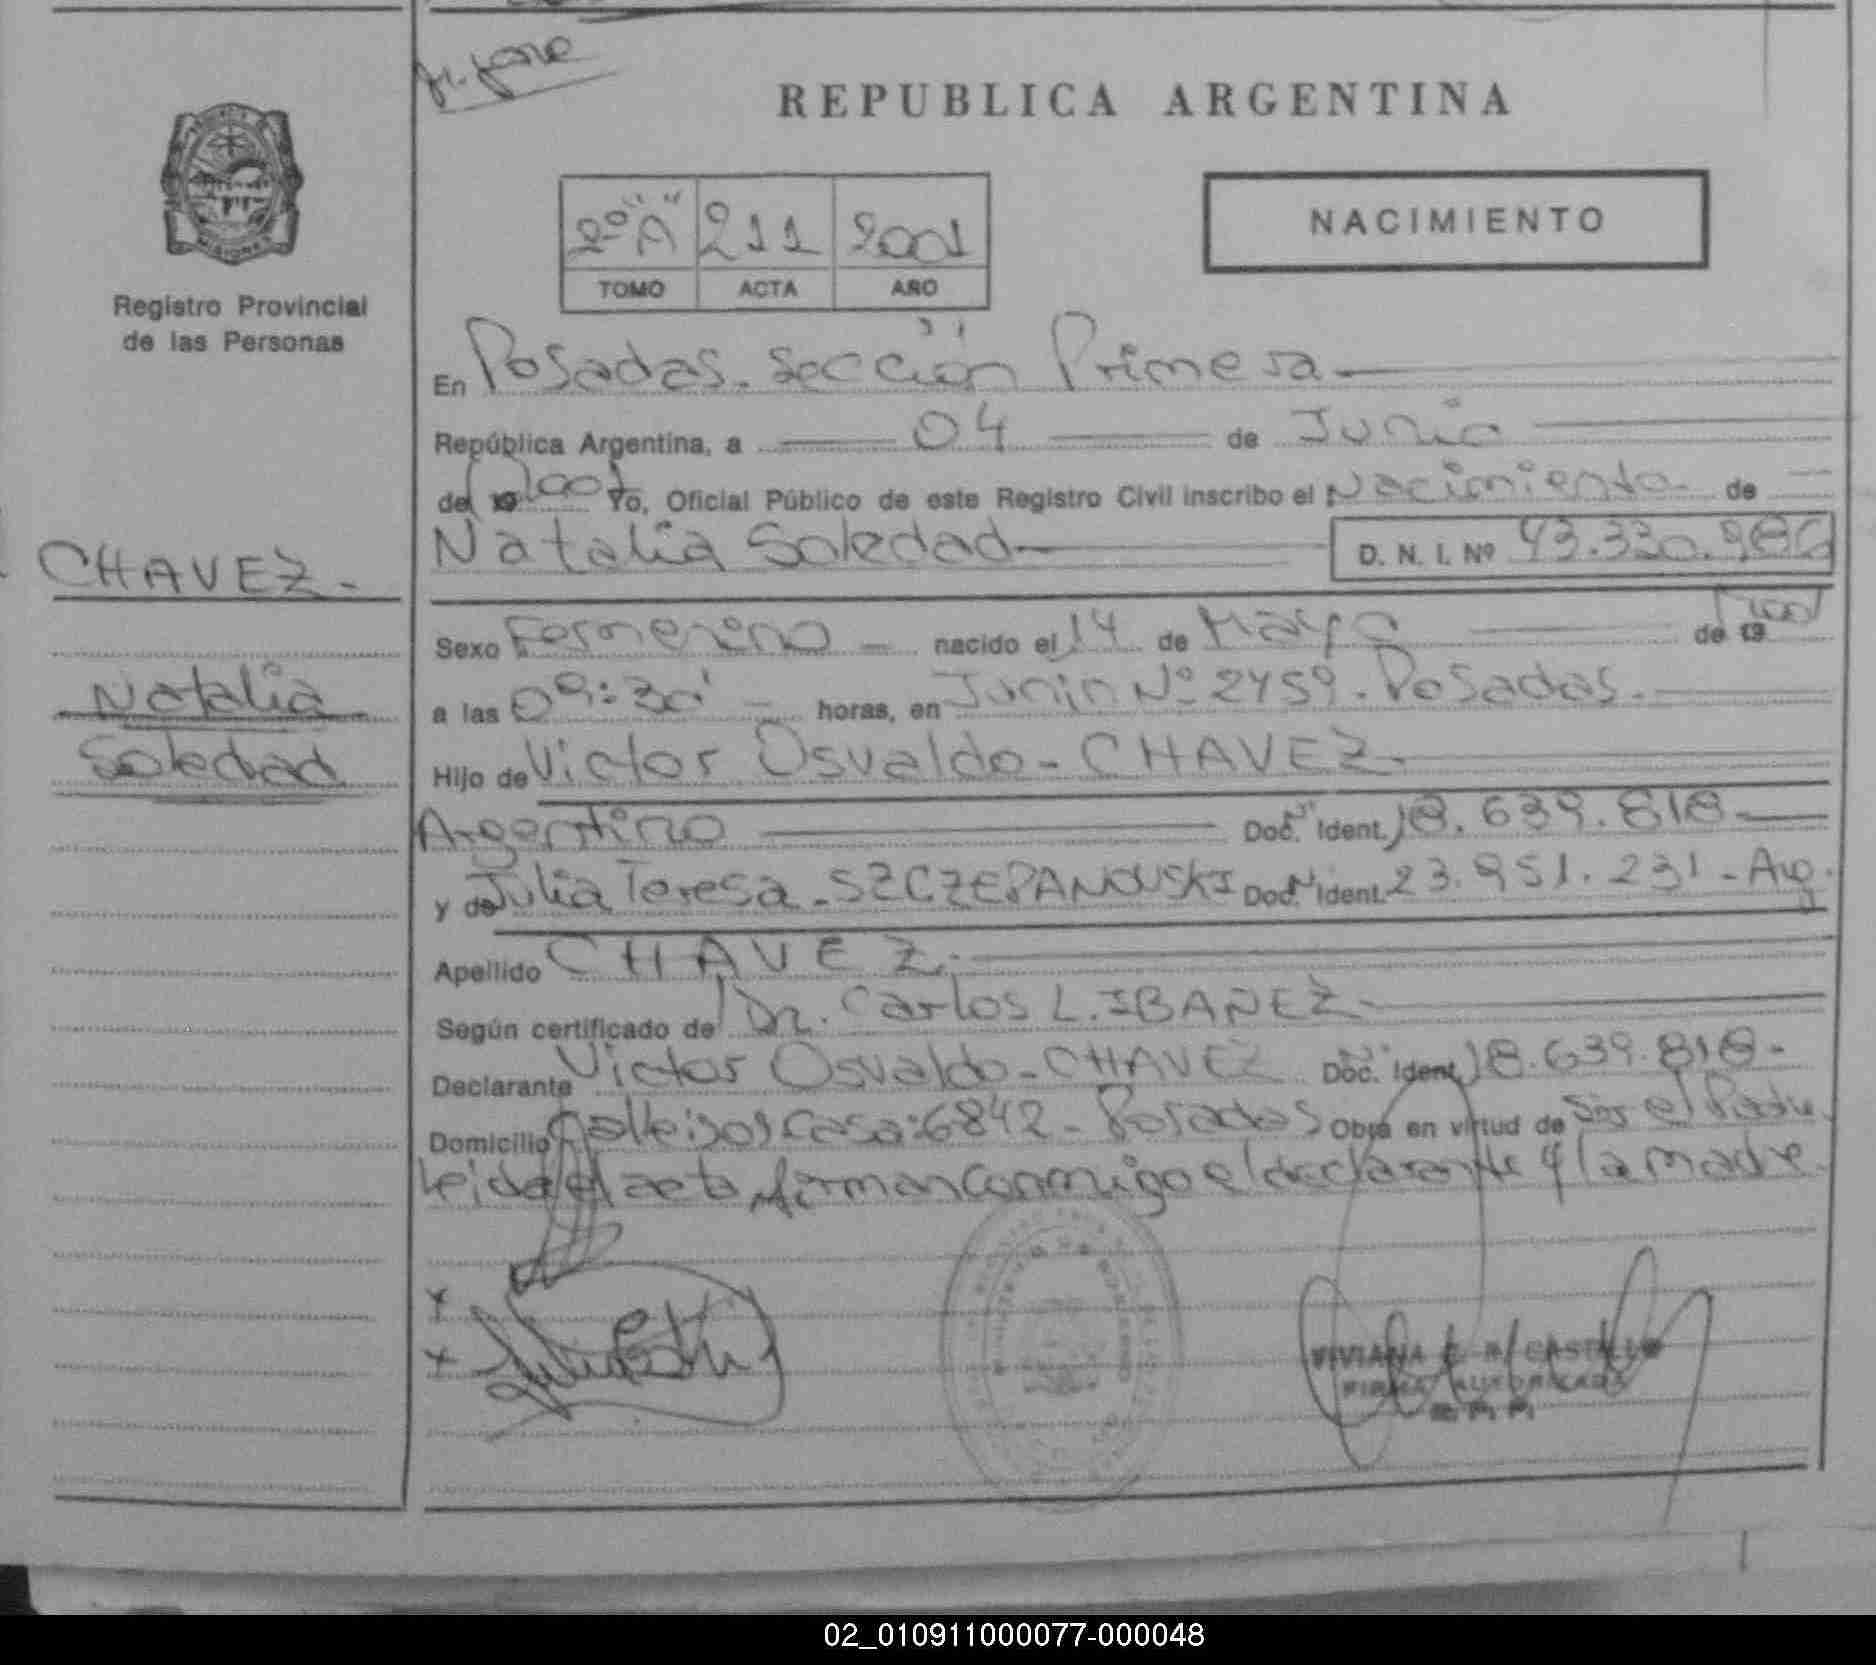 REPUBLICA ARGENTINA
Registro Provincial
de las Personas
MISIONES
2º "A" 211 2001
TOMO ACTA AÑO
NACIMIENTO
CHAVEZ.-
Natalia
Soledad
En Posadas. Sección Primera
República Argentina, a 04 de Junio
de 19 2001 Yo, Oficial Público de este Registro Civil inscribo el Nacimiento de
Natalia Soledad D. N. I. Nº 43.330.986
Sexo Femenino nacido el 14 de Mayo de 19 2001
a las 09:30' horas, en Junin Nº 2459. Posadas.
Hijo de Victor Osvaldo - CHAVEZ
Argentino Doc. Ident. 18.639.818
y de Julia Teresa - SZCZEPANOUSKI Doc. Ident. 23.951.231 - Arg.
Apellido CHAVEZ.
Según certificado de Dr. Carlos L. IBAÑEZ
Declarante Victor Osvaldo - CHAVEZ Doc. Ident. 18.639.818-
Domicilio Casa: 6842 - Posadas Obra en virtud de Ser el Padre.
Leida el acta, firman conmigo el declarante y la madre.
VIVIANA CASTILLO
FIRMA AUTORIZADA
02_010911000077-000048